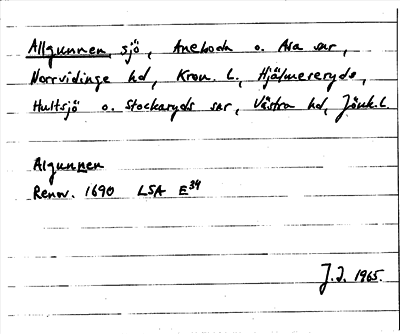 Allgunnen sjö, Aneboda o. Asa snr,
Norrvidinge hd, Kron. L., Hjälmseryds,
Hultsjö o. Stockaryds snr, Västra hd, Jönk. L
Algunnen
Renov. 1690 LSA E34
J.I. 1965.